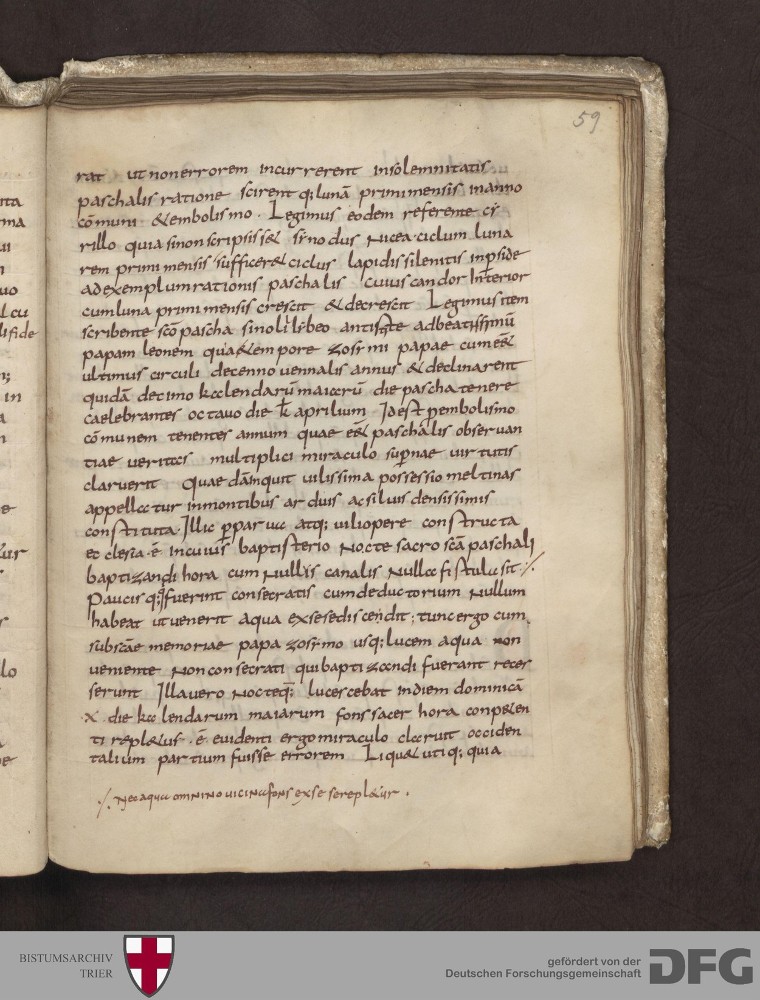 59
rat ut non errorem incurrerent insolemnitatis
paschalis ratione scirent q; lunā primi mensis in anno
cōmuni & embolismo. Legimus eodem referente cy
rillo quia si non scripsiss& synodus nicea ciclum luna
rem primi mensis sufficer& ciclus lapidis silenitis in pside
ad exemplum rationis paschalis cuius candor interior
cum luna primi mensis crescit & decrescit Legimus item
scribente scō pascha sino lilybeo antiste ad beatissimū
papam leonem quia &empore zosimi papae cum ess&
ultimus circuli decennovennalis annus & declinarent
quidā decimo kalendarū maiarū die pascha tenere
caelebrantes octavo die kł aprilium Id est p embolismo
cōmunem tenentes annum quae ess& paschalis observan
tiae veritas multiplici miraculo supnae virtutis
claruerit Quaedā inquit vilissima possessio meltinas
appellatur in montibus arduis ac silvis densissimis
constituta. Illic pparva atq; vili opere constructa
ecclesia ē in cuius baptisterio nocte sacrosca paschali
baptizandi hora cum nullis canalis nulla fistula sit ./.
Paucis q; fuerint consecratis cum deductorium nullum
habeat ut venerit aqua ex se se discendit; tunc ergo cum
sub scae memoriae papa zosimo usq; lucem aqua non
veniente non consecrati qui baptizandi fuerant reces
serunt Illa vero nocte q; lucescebat in diem dominicā
.x. die kalendarum maiarum fons sacer hora conp&en
ti repl&us ē evidenti ergo miraculo claruit occiden
talium partium fuisse errorem Liqu& utiq; quia
./. nec aqua omnino vicina fons ex se se repl&ur .
BISTUMSARCHIV
TRIER
gefördert von der
Deutschen Forschungsgemeinschaft
DFG